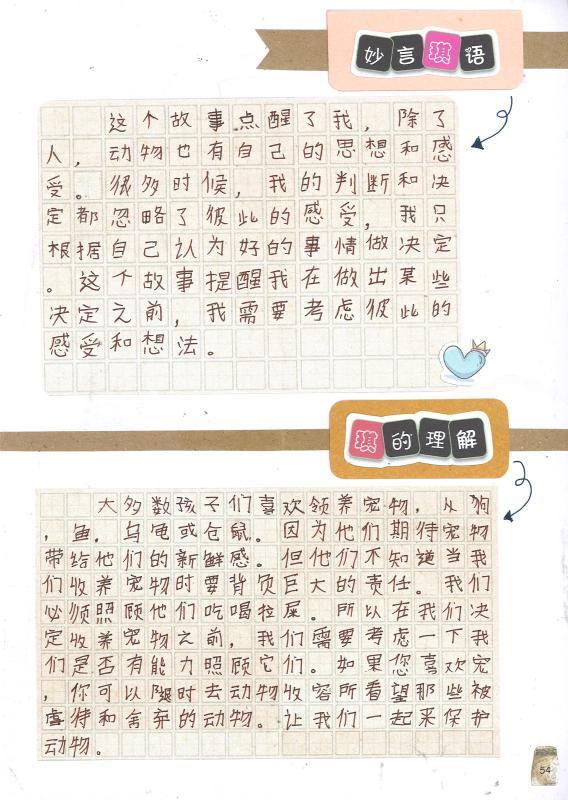 妙言琪语
这个故事点醒了我，除了
人，动物也有自己的思想和感
受。很多时候，我的判断和决
定都忽略了彼此的感受，我只
根据自己认为好的事情做决定
。这个故事提醒我在做出某些
决定之前，我需要考虑彼此的
感受和想法。
琪的理解
大多数孩子们喜欢领养宠物，从狗
，鱼，乌龟或仓鼠。因为他们期待宠物
带给他们的新鲜感。但他们不知道当我
们收养宠物时要背负巨大的责任。我们
必须照顾他们吃喝拉屎。所以在我们决
定收养宠物之前，我们需要考虑一下我
们是否有能力照顾它们。如果您喜欢宠
，你可以随时去动物收容所看望那些被
虐待和舍弃的动物。让我们一起来保护
动物。
54